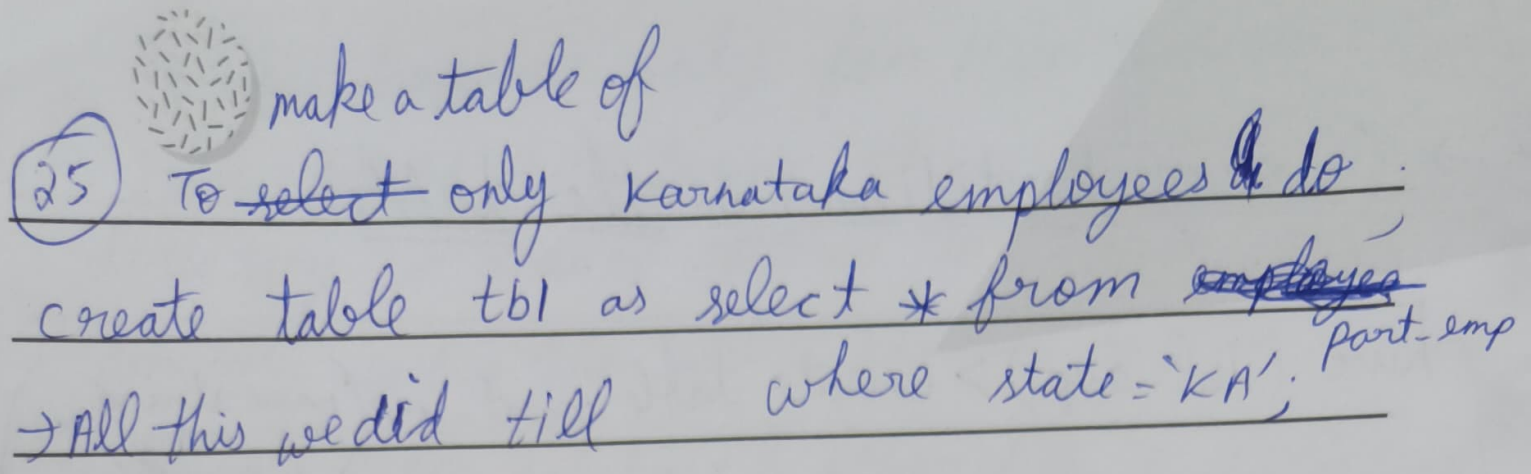 make a table of
25 To select only Karnataka employees do
create table tbl as select * from employee
part_emp
where state = 'KA';
→ All this we did till